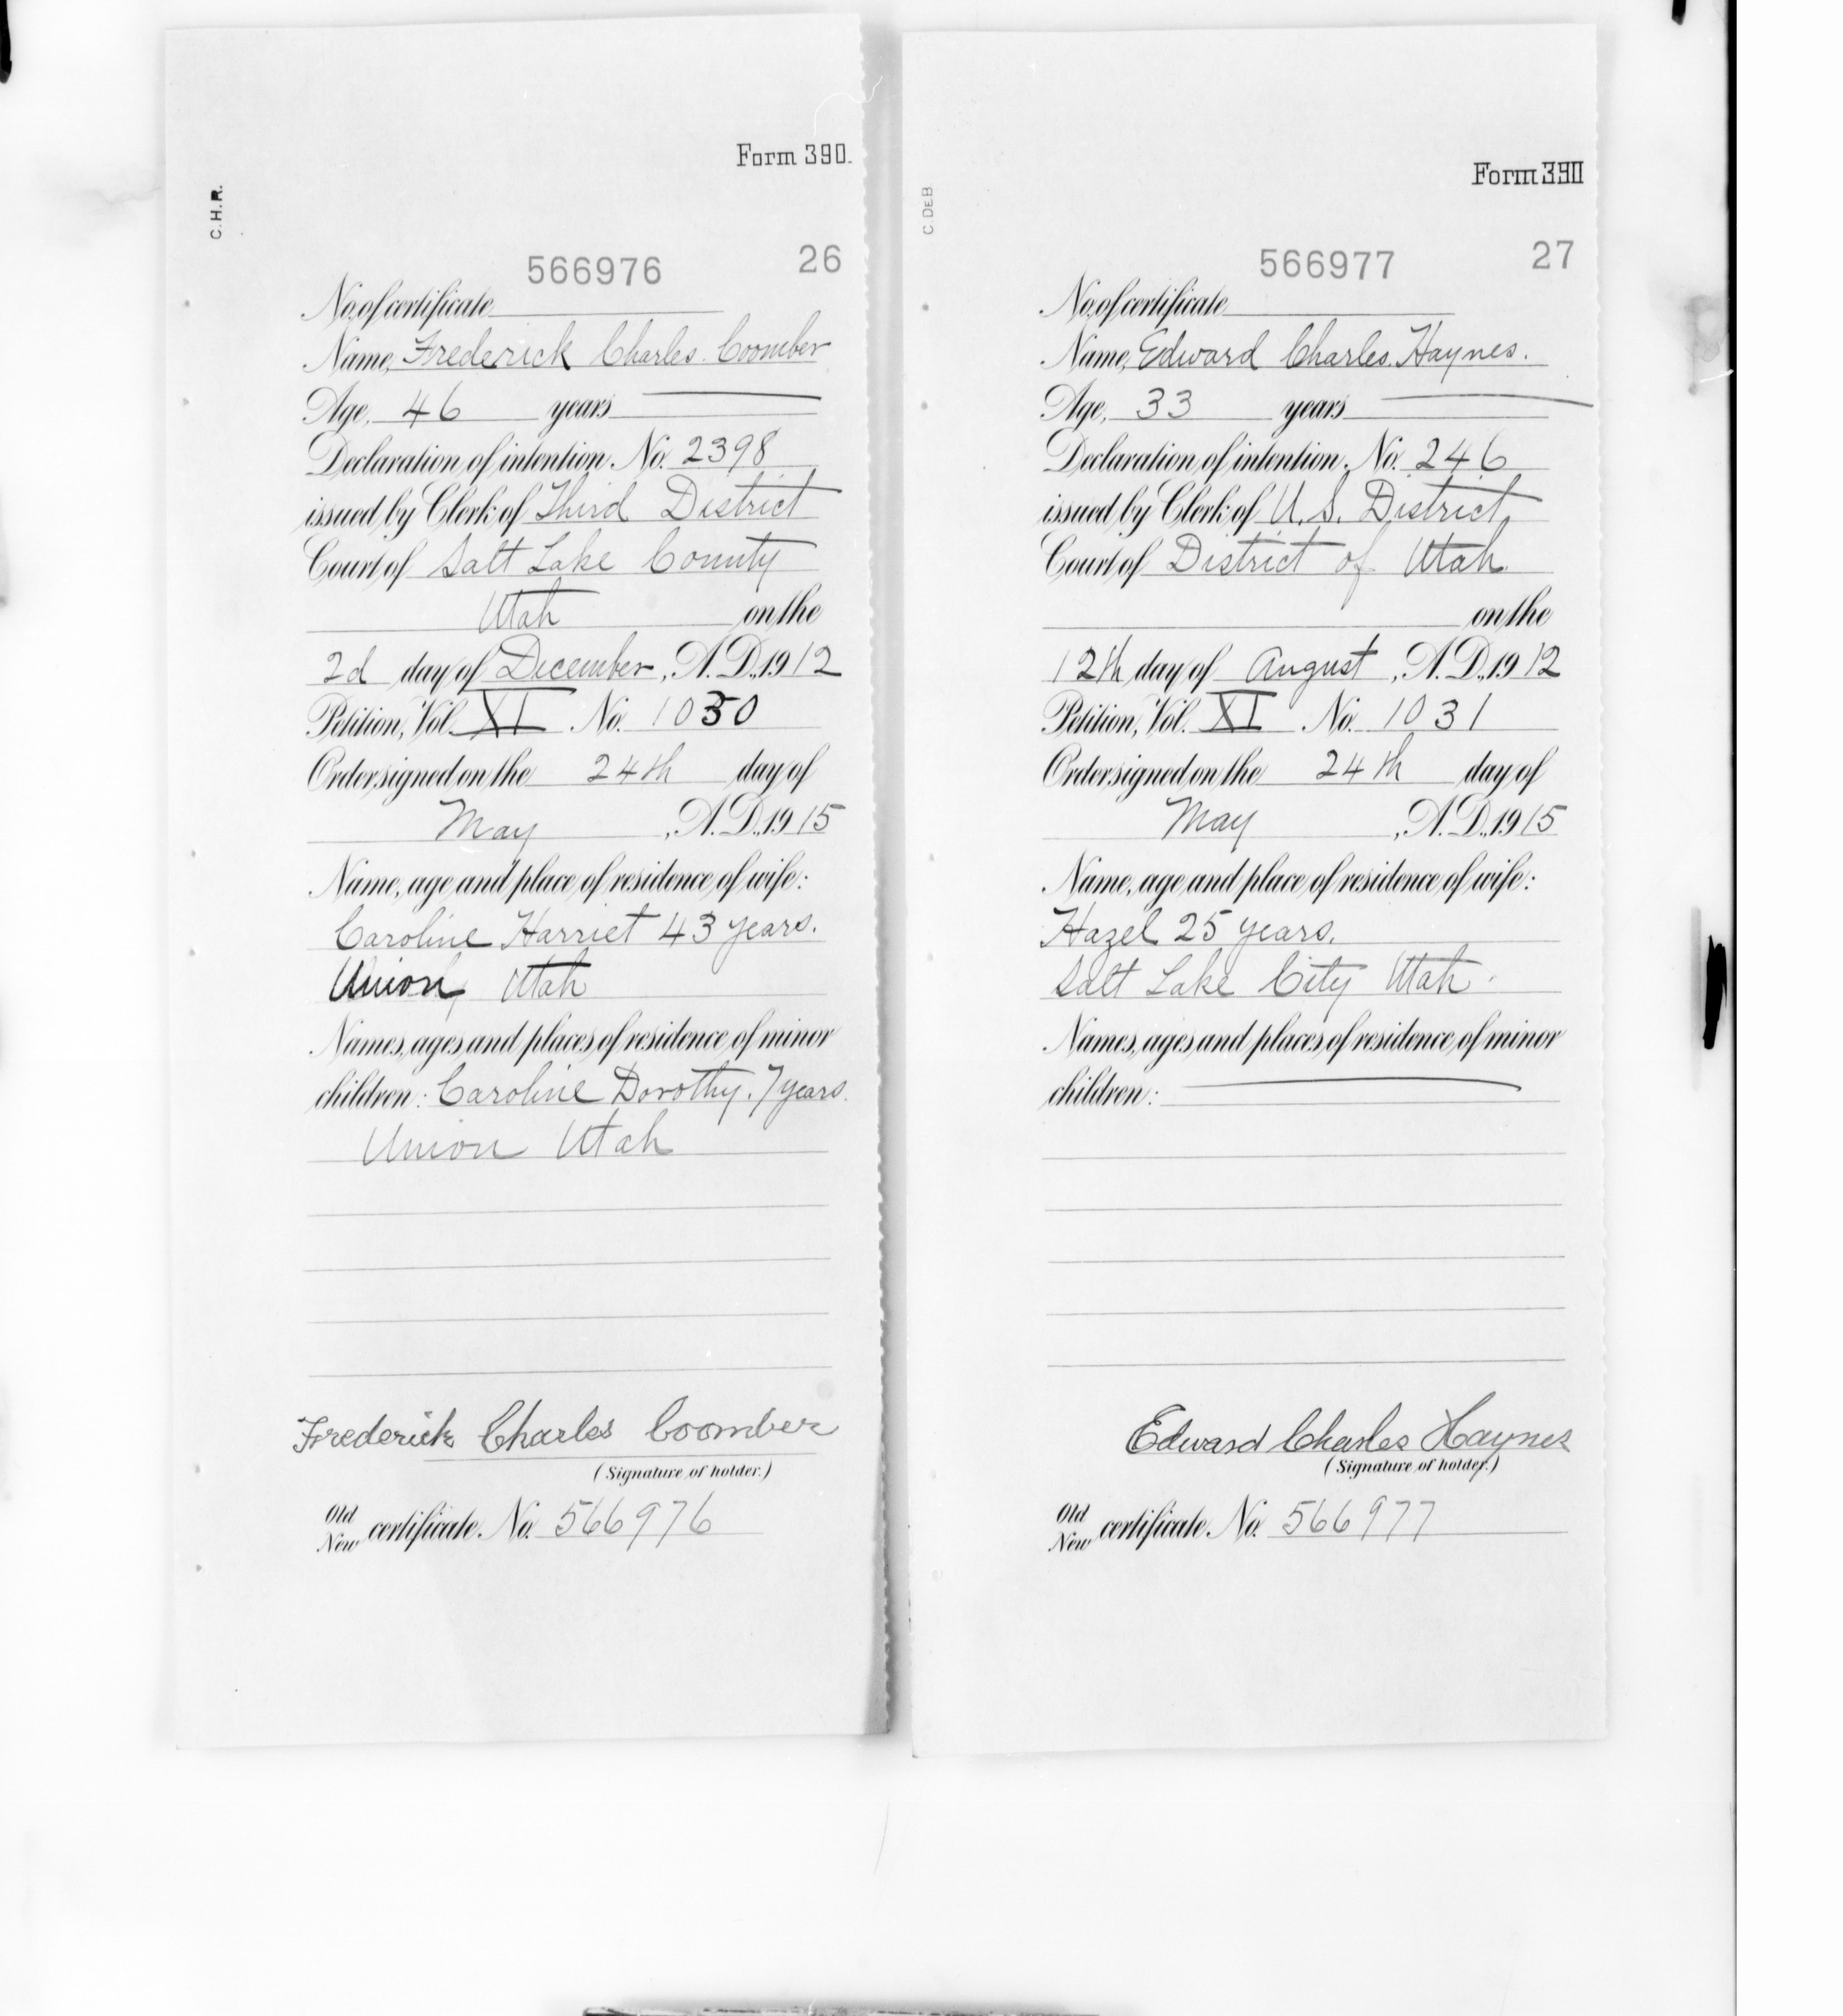 Form 390.
C.H.R.
566976 26
No. of certificate
Name, Frederick Charles Coomber
Age, 46 years
Declaration of intention, No. 2398
issued by Clerk of Third District
Court of Salt Lake County
Utah on the
2d day of December, A.D. 1912
Petition, Vol. XI No. 1030
Order signed on the 24th day of
May, A.D. 1915
Name, age and place of residence of wife:
Caroline Harriet 43 years.
Union, Utah
Names, ages and places of residence of minor
children: Caroline Dorothy. 7 years.
Union Utah
Frederick Charles Coomber
(Signature of holder.)
Old
New certificate No. 566976
Form 390
C. DEB
566977 27
No. of certificate
Name, Edward Charles Haynes.
Age, 33 years
Declaration of intention, No. 246
issued by Clerk of U.S. District
Court of District of Utah
on the
12th day of August, A.D. 1912
Petition, Vol. XI No. 1031
Order signed on the 24th day of
May, A.D. 1915
Name, age and place of residence of wife:
Hazel 25 years.
Salt Lake City Utah.
Names, ages and places of residence of minor
children:
Edward Charles Haynes
(Signature of holder.)
Old
New certificate No. 566977